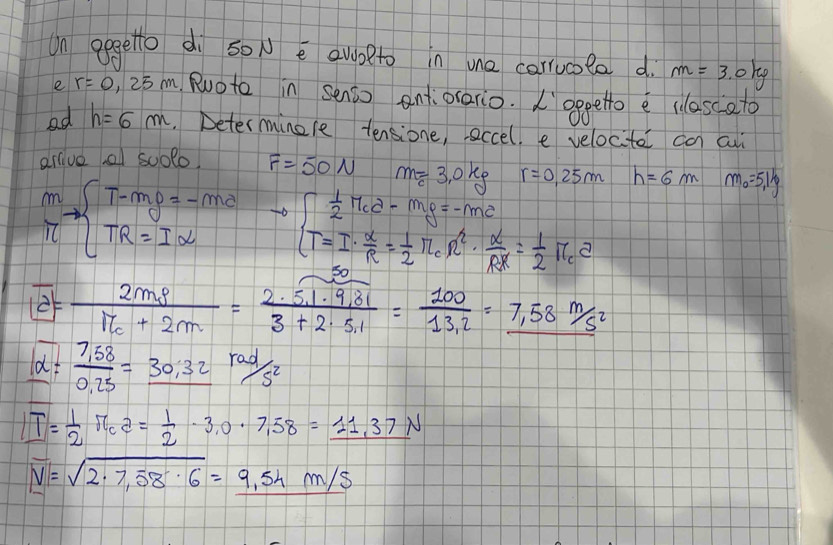 Un oggetto di 50N è avvolto in una carrucola di m = 3.0 kg
e r = 0,25 m. Ruota in senso antiorario. L'oggetto è rilasciato
ad h = 6 m. Determinare tensione, accel. e velocità con cui
arriva al suolo. F = 50 N m_c = 3,0 kg r = 0,25 m h = 6 m m_o = 5,1 kg
m → { T - mg = -ma → { 1/2 M_c a - mg = -ma
M { TR = I α { T = I · α/R = 1/2 M_c R² · α/RR = 1/2 M_c a
a = 2mg / (M_c + 2m) = 2 · 5,1 · 9,81 (50) / (3 + 2 · 5,1) = 100 / 13,2 = 7,58 m/s²
α = 7,58 / 0,25 = 30,32 rad/s²
T = 1/2 M_c a = 1/2 · 3,0 · 7,58 = 11,37 N
V = √(2 · 7,58 · 6) = 9,54 m/s